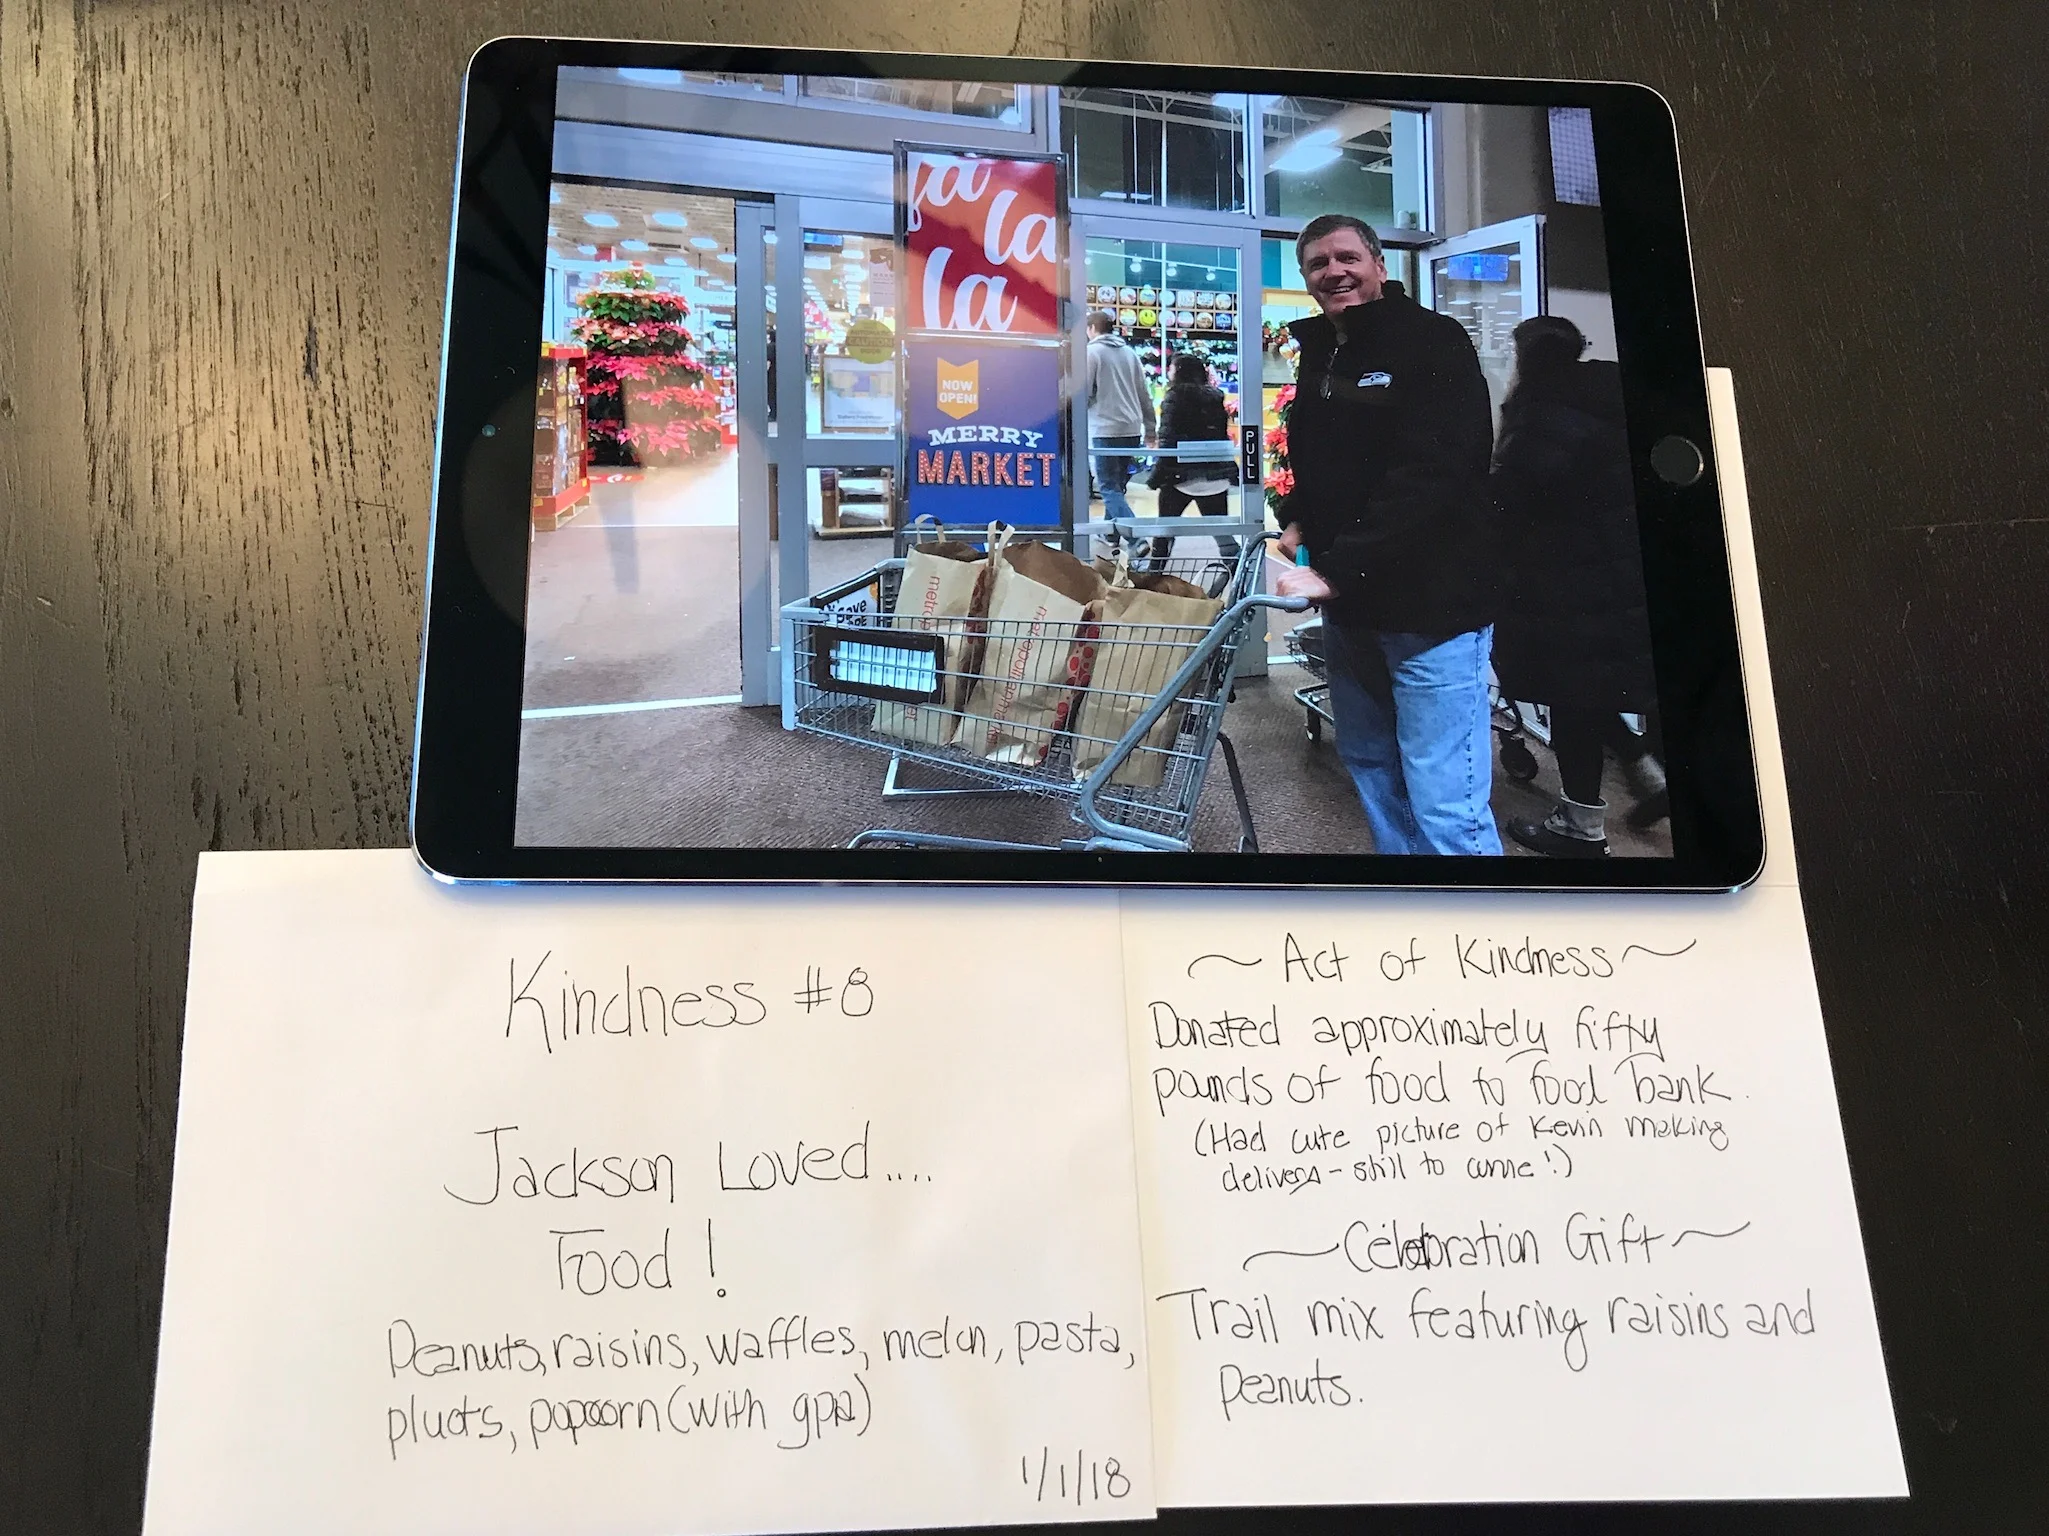 fa
la
la
NOW
OPEN!
MERRY
MARKET
PULL
metropolitan market
Kindness #8
Jackson Loved....
Food!
Peanuts, raisins, waffles, melon, pasta,
pluots, popcorn (with gpa)
1/1/18
~ Act of Kindness ~
Donated approximately fifty
pounds of food to food bank.
(Had cute picture of Kevin making
delivery - still to come!)
~ Celebration Gift ~
Trail mix featuring raisins and
peanuts.